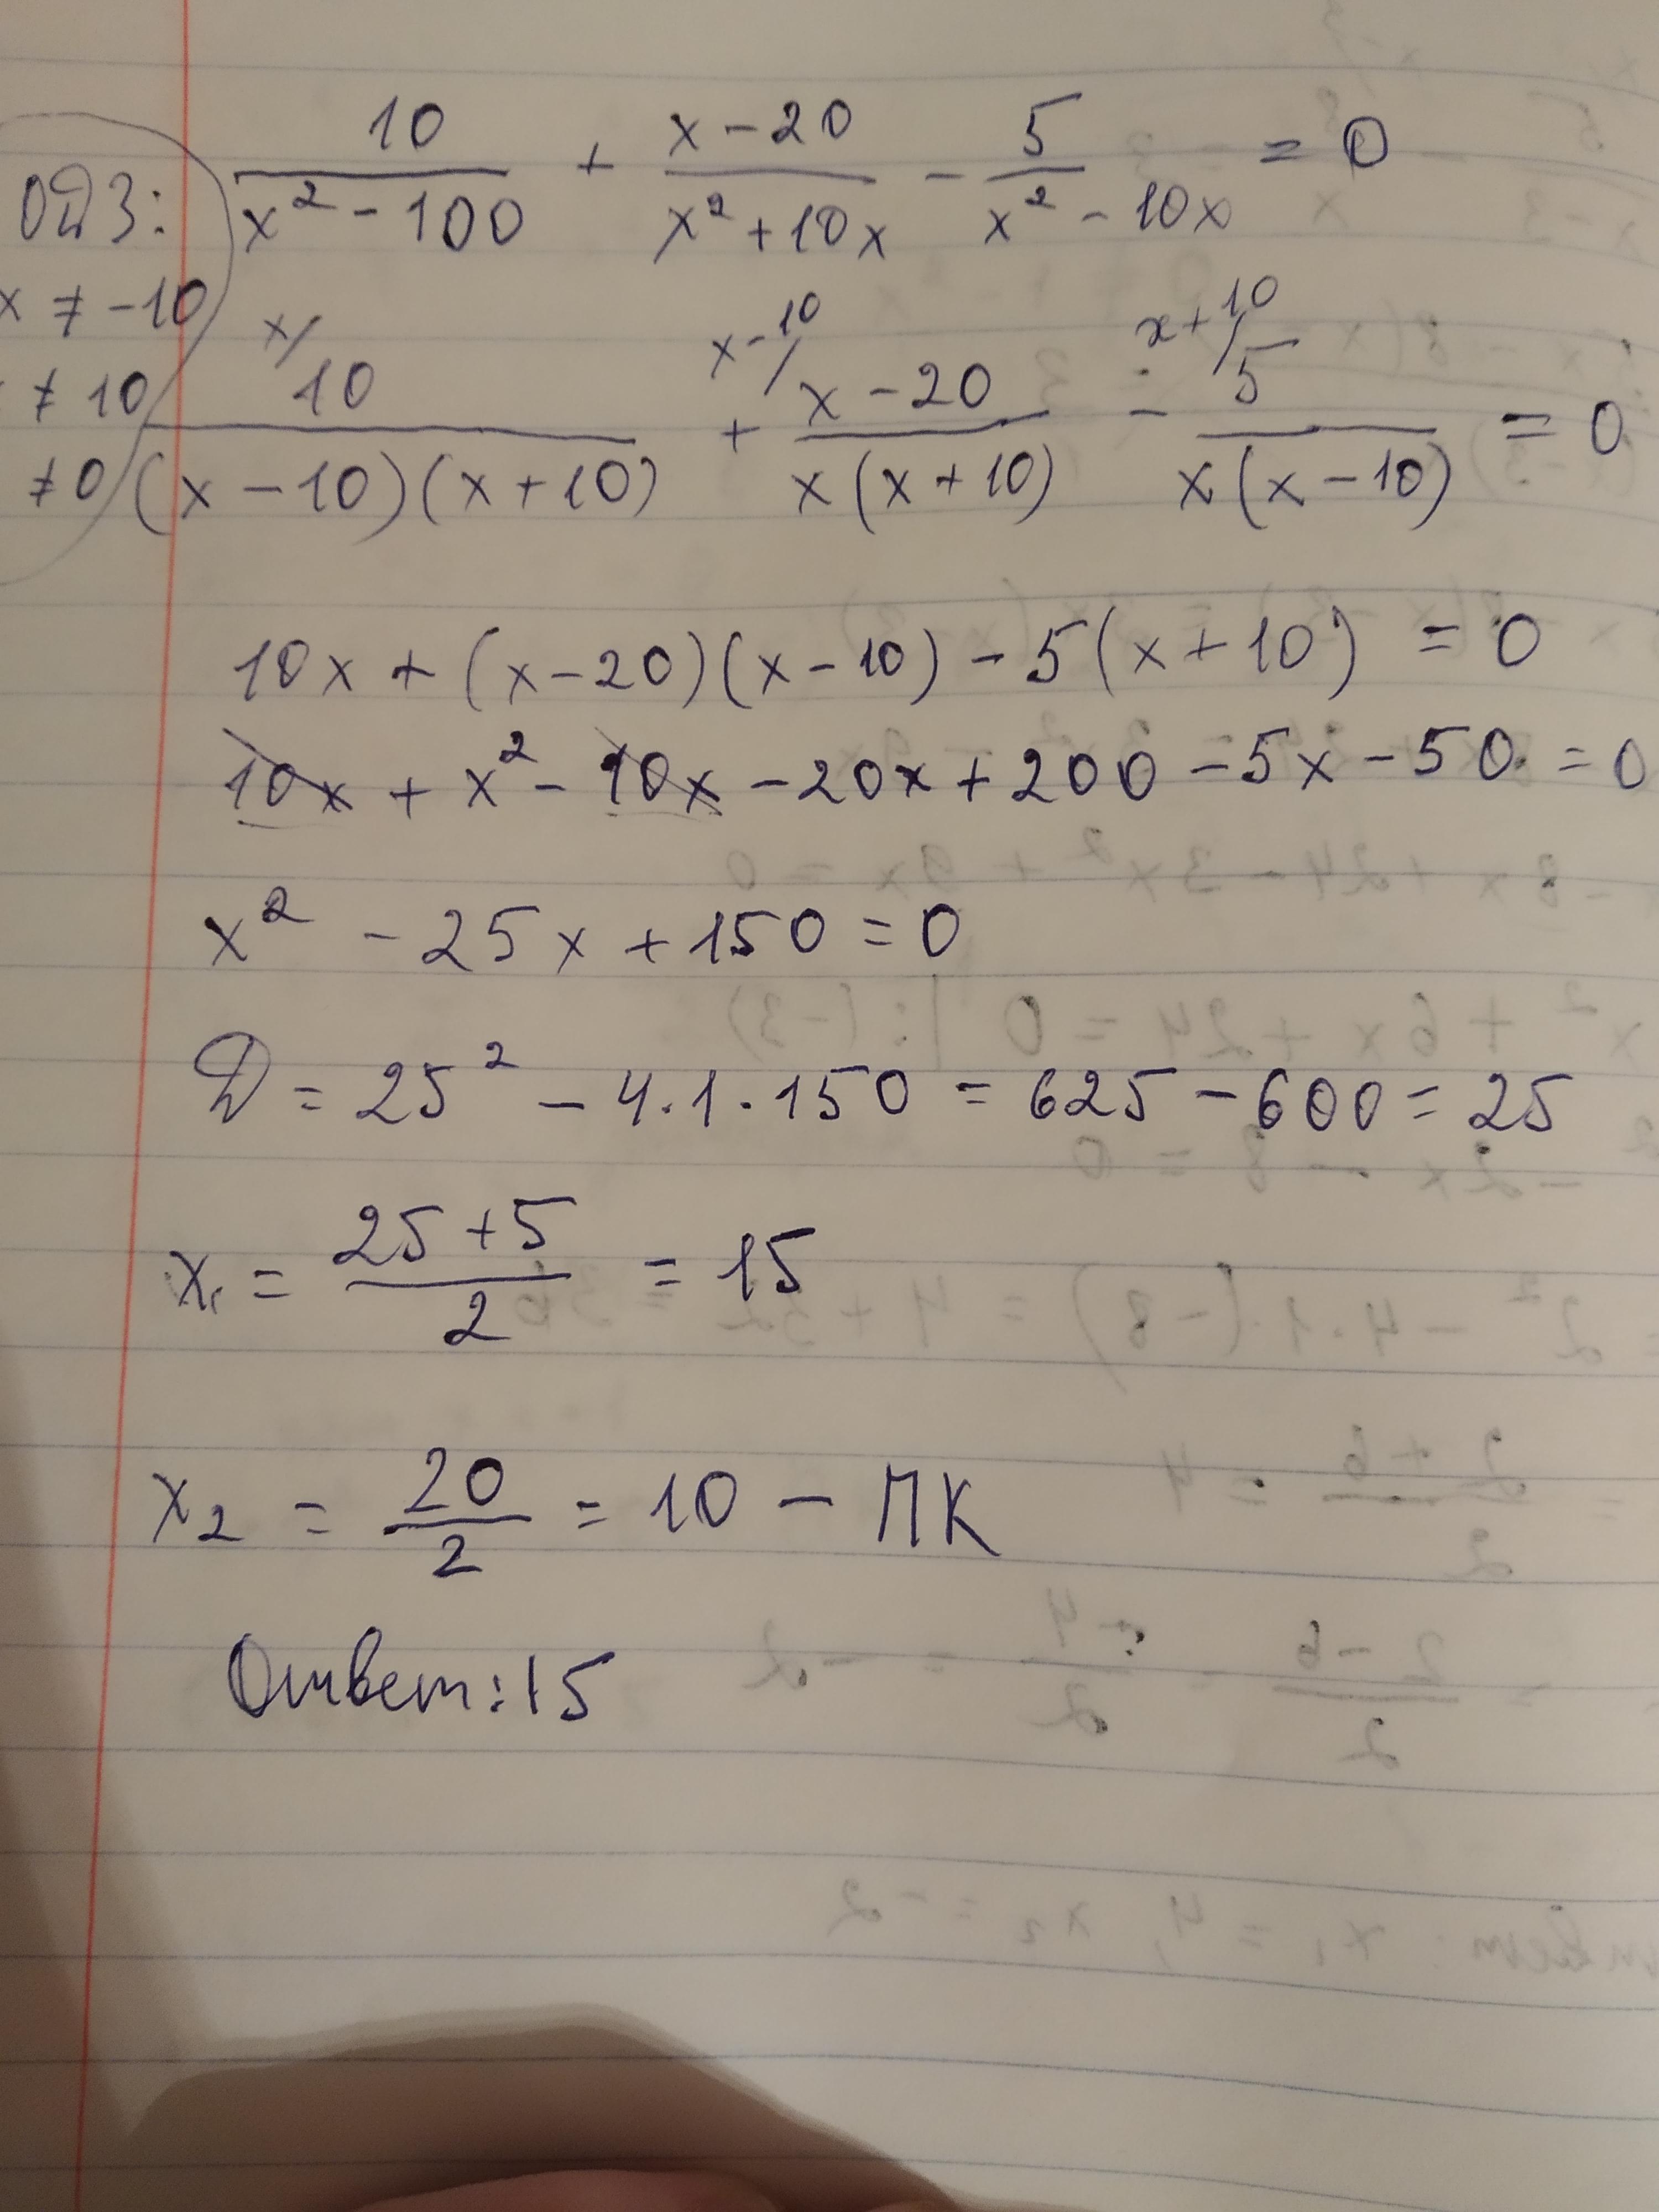 10/(x² - 100) + (x - 20)/(x² + 10x) - 5/(x² - 10x) = 0
ОДЗ:
x ≠ -10
≠ 10
≠ 0
x/ 10/((x - 10)(x + 10)) + x - 10/ (x - 20)/(x(x + 10)) - x + 10/ 5/(x(x - 10)) = 0
10x + (x - 20)(x - 10) - 5(x + 10) = 0
10x + x² - 10x - 20x + 200 - 5x - 50 = 0
x² - 25x + 150 = 0
D = 25² - 4·1·150 = 625 - 600 = 25
x₁ = (25 + 5)/2 = 15
x₂ = 20/2 = 10 - ПК
Ответ: 15